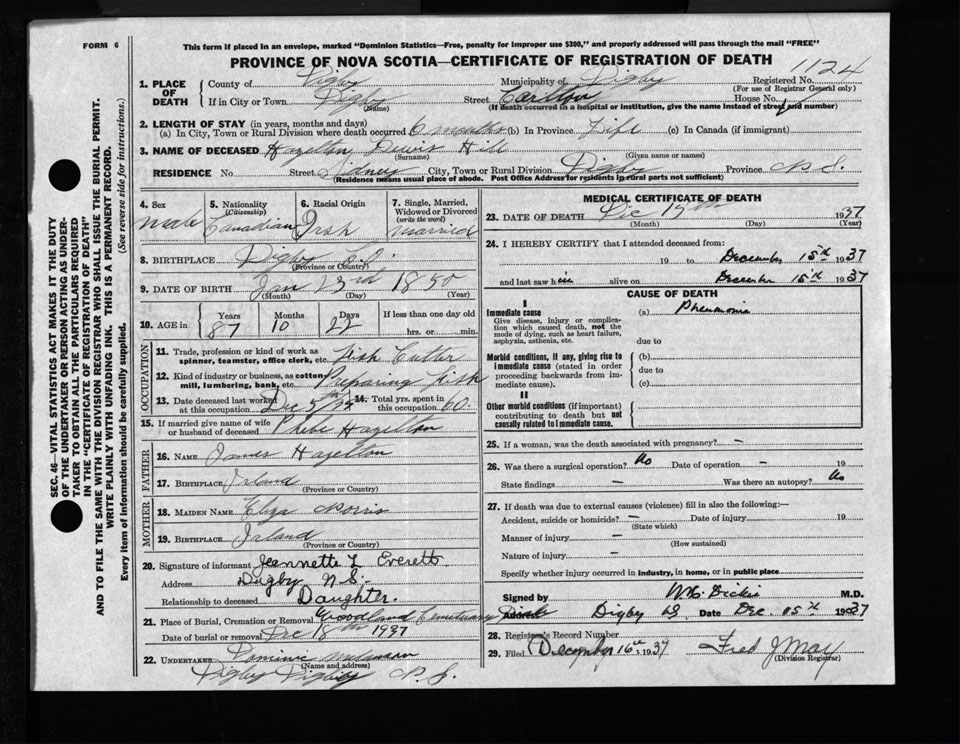 FORM 6
This form if placed in an envelope, marked "Dominion Statistics—Free, penalty for improper use $300," and properly addressed will pass through the mail "FREE"
PROVINCE OF NOVA SCOTIA—CERTIFICATE OF REGISTRATION OF DEATH
1124
1. PLACE OF DEATH County of Digby Municipality of Digby Registered No.
(For use of Registrar General only)
If in City or Town Digby Street Carlton House No.
(Name) (If death occurred in a hospital or institution, give the name instead of street and number)
2. LENGTH OF STAY (in years, months and days)
(a) In City, Town or Rural Division where death occurred 6 months (b) In Province Life (c) In Canada (if immigrant)
3. NAME OF DECEASED Hazelton, Lewis Hill
(Surname) (Given name or names)
RESIDENCE No. Street Sidney City, Town or Rural Division Digby Province N.S.
(Residence means usual place of abode. Post Office Address for residents in rural parts not sufficient)
4. Sex male
5. Nationality (Citizenship) Canadian
6. Racial Origin Irsh
7. Single, Married, Widowed or Divorced (write the word) married
8. BIRTHPLACE Digby
(Province or Country)
9. DATE OF BIRTH Jan 23rd 1850
(Month) (Day) (Year)
10. AGE in Years 87 Months 10 Days 22 If less than one day old
hrs. or min.
OCCUPATION
11. Trade, profession or kind of work as spinner, teamster, office clerk, etc. Fish Cutter
12. Kind of industry or business, as cotton-mill, lumbering, bank, etc. Preparing Fish
13. Date deceased last worked at this occupation Dec 5th
14. Total yrs. spent in this occupation 60.
15. If married give name of wife or husband of deceased Phebe Hazelton
FATHER
16. NAME James Hazelton
17. BIRTHPLACE Irland
(Province or Country)
MOTHER
18. MAIDEN NAME Eliza Morris
19. BIRTHPLACE Irland
(Province or Country)
20. Signature of informant Jeannette L Everett
Address Digby N.S.
Relationship to deceased Daughter.
21. Place of Burial, Cremation or Removal Woodland Cemetuary
Date of burial or removal Dec 18th 1937
22. UNDERTAKER Dominic
(Name and address)
Digby Digby N.S.
MEDICAL CERTIFICATE OF DEATH
23. DATE OF DEATH Dec 15th 1937
(Month) (Day) (Year)
24. I HEREBY CERTIFY that I attended deceased from:
19 to December 15th 1937
and last saw him alive on December 15th 1937
CAUSE OF DEATH
I
Immediate cause (a) Phenmonia
Give disease, injury or complication which caused death, not the mode of dying, such as heart failure, asphyxia, asthenia, etc.
due to
Morbid conditions, if any, giving rise to immediate cause (stated in order proceeding backwards from immediate cause).
(b)
due to
(c)
II
Other morbid conditions (if important) contributing to death but not causally related to immediate cause.
25. If a woman, was the death associated with pregnancy? –
26. Was there a surgical operation? No Date of operation – 19
State findings – Was there an autopsy? No
27. If death was due to external causes (violence) fill in also the following:—
Accident, suicide or homicide? – Date of injury 19
(State which)
Manner of injury –
(How sustained)
Nature of injury –
Specify whether injury occurred in industry, in home, or in public place
Signed by W.R. Dickie M.D.
Address Digby NS Date Dec. 15th 1937
28. Registrar's Record Number
29. Filed December 16th 1937 Fred J May
(Division Registrar)
SEC. 46—VITAL STATISTICS ACT MAKES IT THE DUTY
OF THE UNDERTAKER OR PERSON ACTING AS UNDER-
TAKER TO OBTAIN ALL THE PARTICULARS REQUIRED
IN THE "CERTIFICATE OF REGISTRATION OF DEATH"
AND TO FILE THE SAME WITH THE DIVISION REGISTRAR WHO SHALL ISSUE THE BURIAL PERMIT.
WRITE PLAINLY WITH UNFADING INK. THIS IS A PERMANENT RECORD.
Every item of information should be carefully supplied. (See reverse side for instructions.)